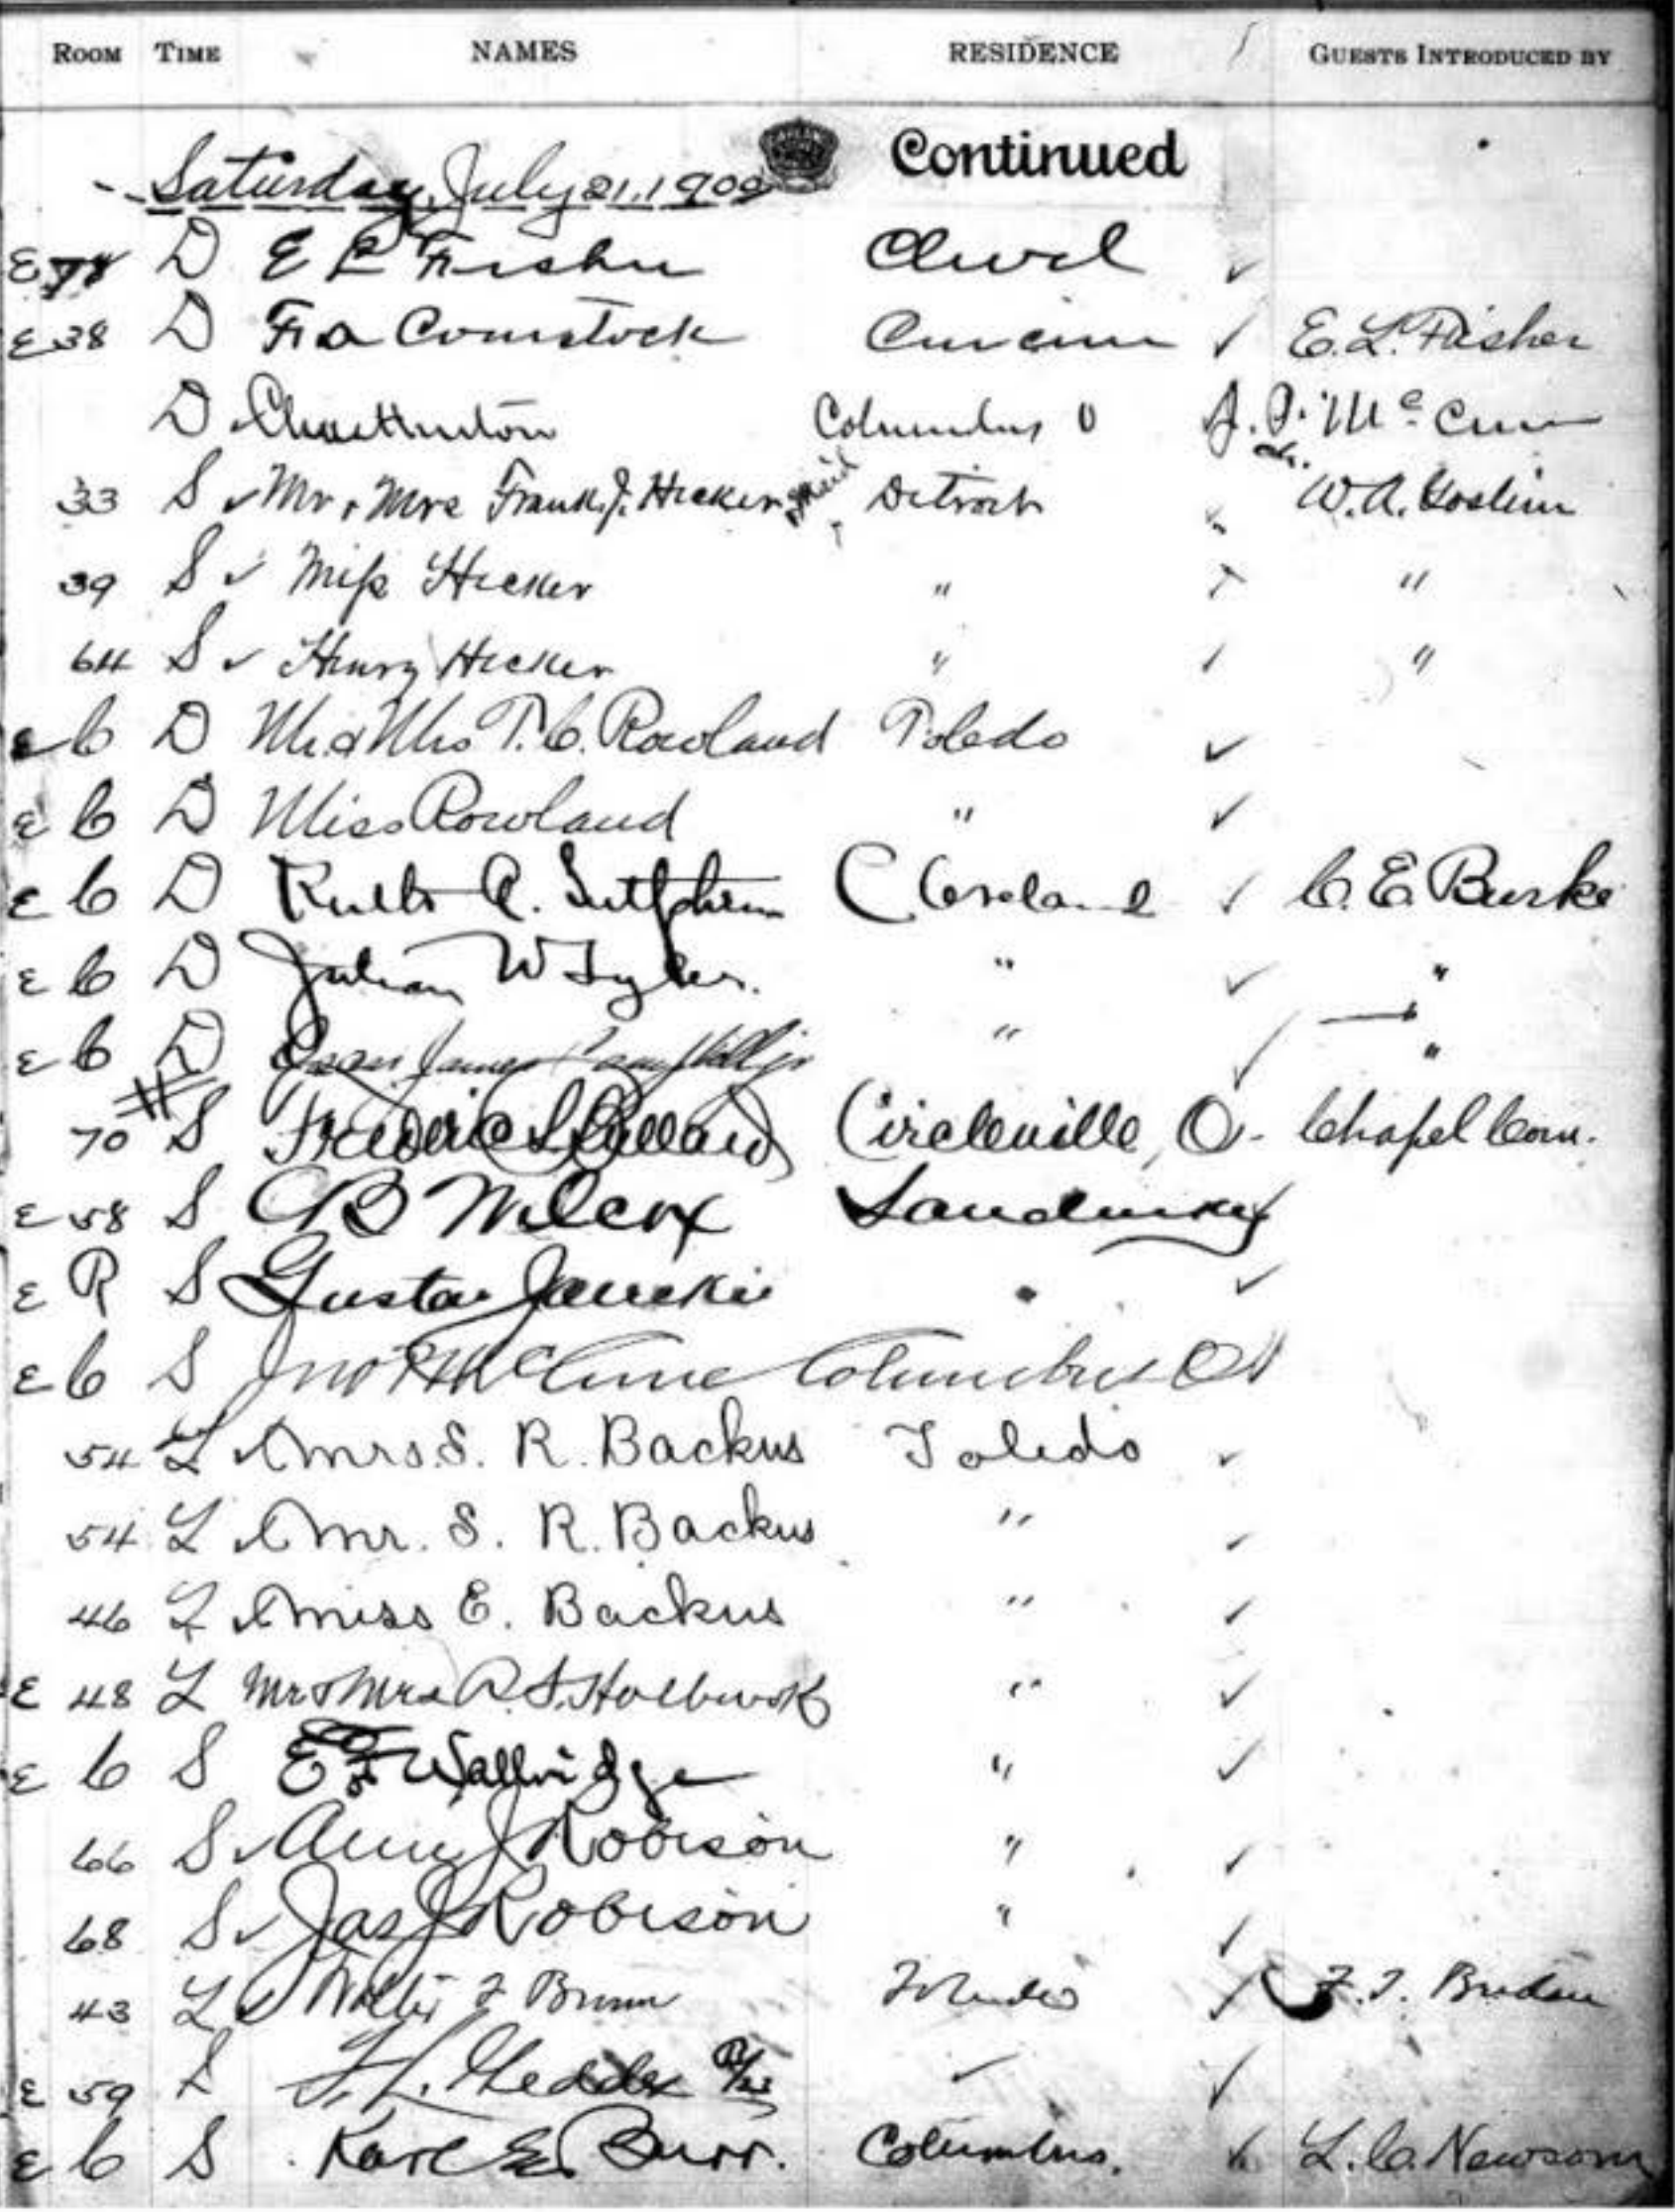 ROOM TIME NAMES RESIDENCE GUESTS INTRODUCED BY
Continued
Saturday, July 21, 190
E D E L Fisher Clevel
E 38 D Comstock E. L. Fisher
D Chas Hinton Columbus O
33 S Mr & Mrs Frank J. Hecker & maid Detroit W. A. Goslin
39 S Miss Hecker " "
64 S Henry Hecker " "
E 6 D Mr. & Mrs T. C. Rowland Toledo
E 6 D Miss Rowland "
E 6 D A. Sutphen Cleveland C. E. Burke
E 6 D Julian W Tyler. " "
E 6 D James jr " "
70 S Circleville, O. Chapel Com.
E 58 S C B Wilcox Sandusky
E R S Gustav "
E 6 S Jno P McCune Columbus O
54 L Mrs. S. R. Backus Toledo
54 L Mr. S. R. Backus "
46 L Miss E. Backus "
E 48 L Mr & Mrs R. S. Holbrook "
E 6 S E Walbridge "
66 S J Robison "
68 S Jas J Robison "
43 L F Toledo
E 59 L F. L. Geddes
E 6 S Karl E. Burr. Columbus. L. C. Newsom